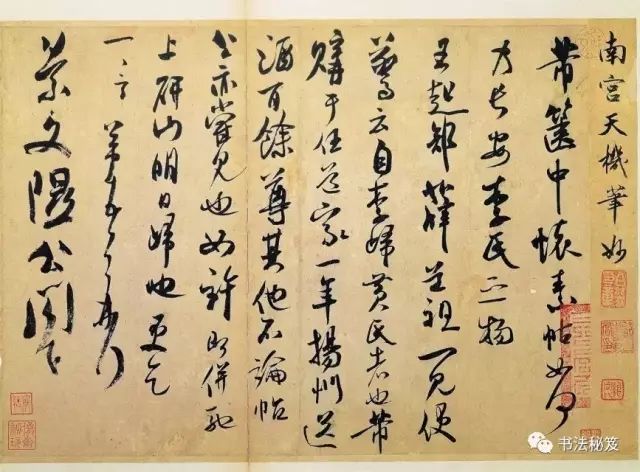 南宫天機筆妙
芾篋中懷素帖如何
乃長安李氏之物
王起部薛道祖一見便
驚云自李歸黄氏者也芾
購于任道家一年揚州送
酒百餘尊其他不論帖
公亦嘗見也如許即併馳
上研山明日歸也更乞
一言芾頓首再拜
景文隰公閤下
书法秘笈